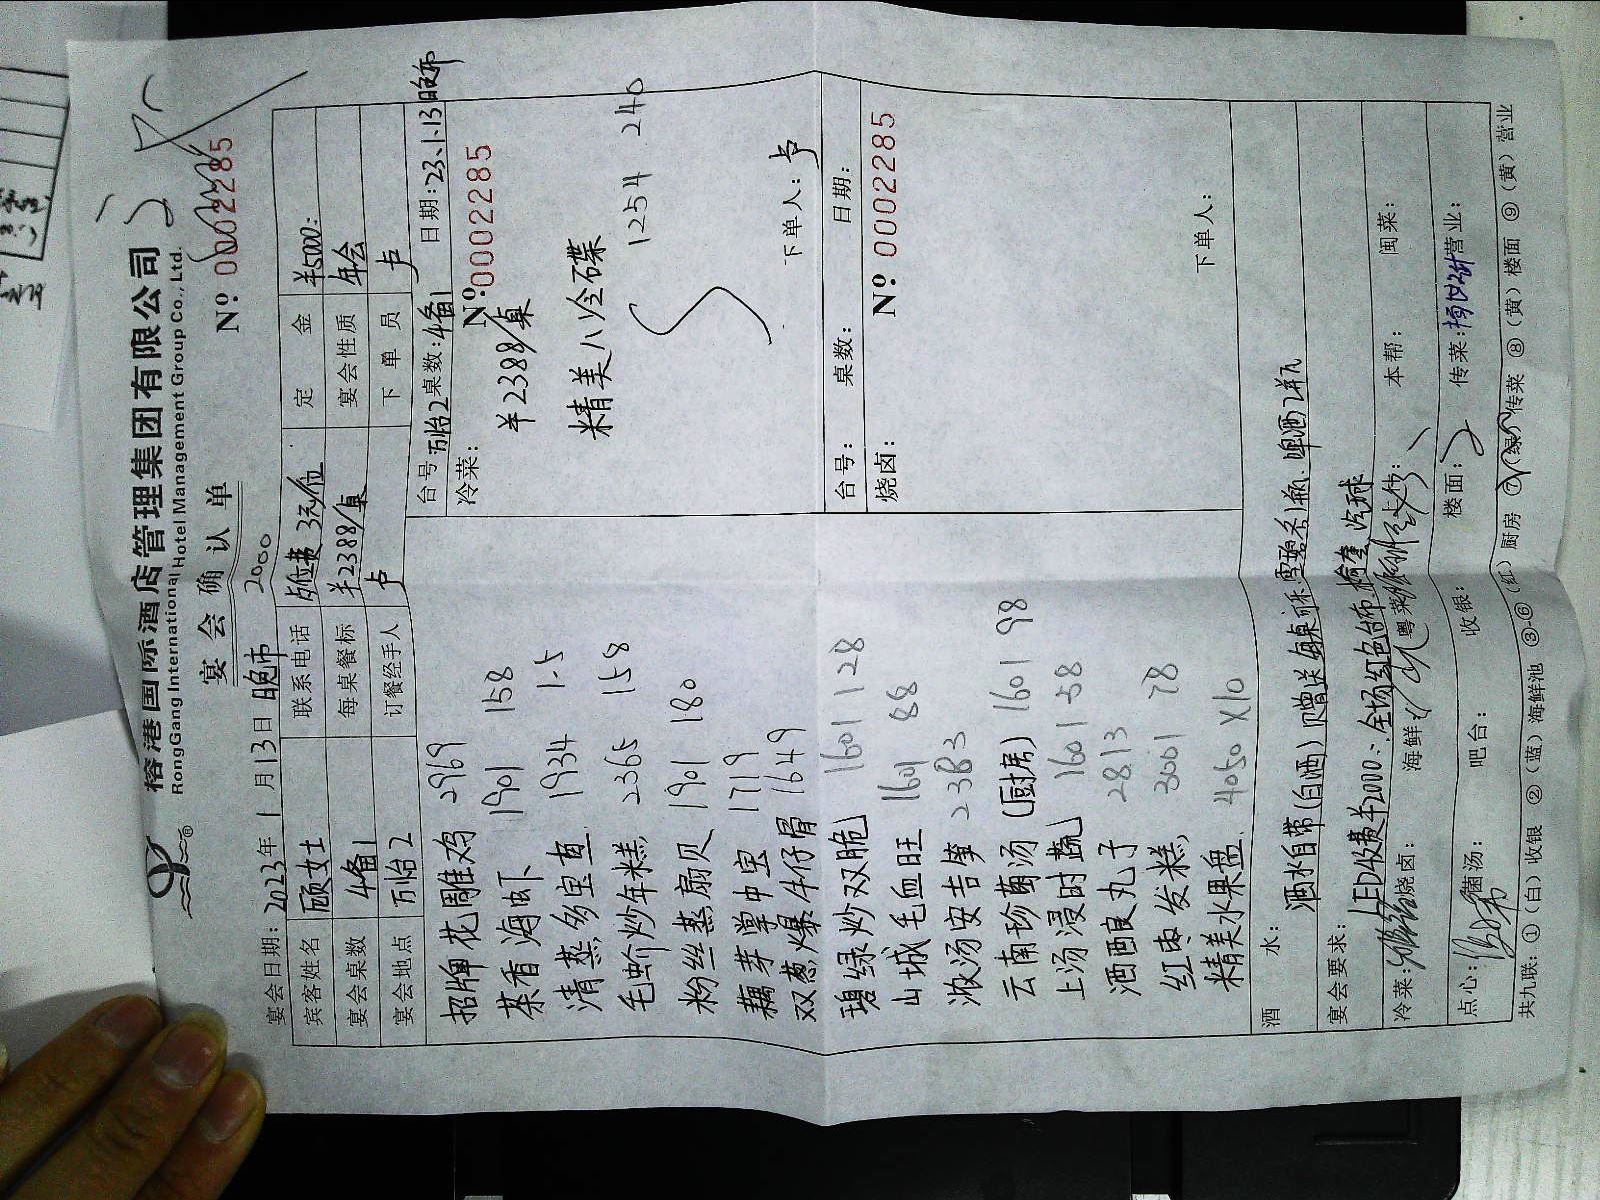 榕港国际酒店管理集团有限公司
RongGang International Hotel Management Group Co., Ltd.
宴会确认单
2000
No: 0002285
宴会日期: 2023年1月13日 晚市
宾客姓名 顾女士 联系电话 餐位费 3元/位 定金 ¥5000.-
宴会桌数 4备1 每桌餐标 ¥2388/桌 宴会性质 年会
宴会地点 万怡2 订餐经手人 卢 下单员 卢
招牌花雕鸡 2969
茶香海虾 1901 158
清蒸多宝鱼 1934 1-5
毛蚧炒年糕 2365 158
粉丝蒸扇贝 1901 180
藕芽掌中宝 1719
双葱爆牛仔骨 1649
碧绿炒双脆 1601 128
山城毛血旺 1601 88
浓汤安吉笋 2383
云南珍菌汤(厨房) 1601 98
上汤浸时蔬 1601 58
酒酿丸子 2813
红枣发糕 3001 78
精美水果盘 4050 X10
台号: 万怡2 桌数: 4备1 日期: 23.1.13晚市
冷菜:
No: 0002285
¥2388/桌
精美八冷碟
1254 240
下单人: 卢
台号: 桌数: 日期:
烧卤:
No: 0002285
下单人:
酒水: 酒水自带(白酒)赠送每桌可乐雪碧各1瓶.啤酒2瓶
宴会要求: LED收费¥2000.-.全场红色台布 椅套 汽球
冷菜: 烧卤: 海鲜: 粤菜: 本帮: 闽菜:
点心: 菌汤: 吧台: 收银: 楼面: 传菜: 营业:
共九联: ①(白)收银 ②(蓝)海鲜池 ③-⑥(红)厨房 ⑦(绿)传菜 ⑧(黄)楼面 ⑨(黄)营业